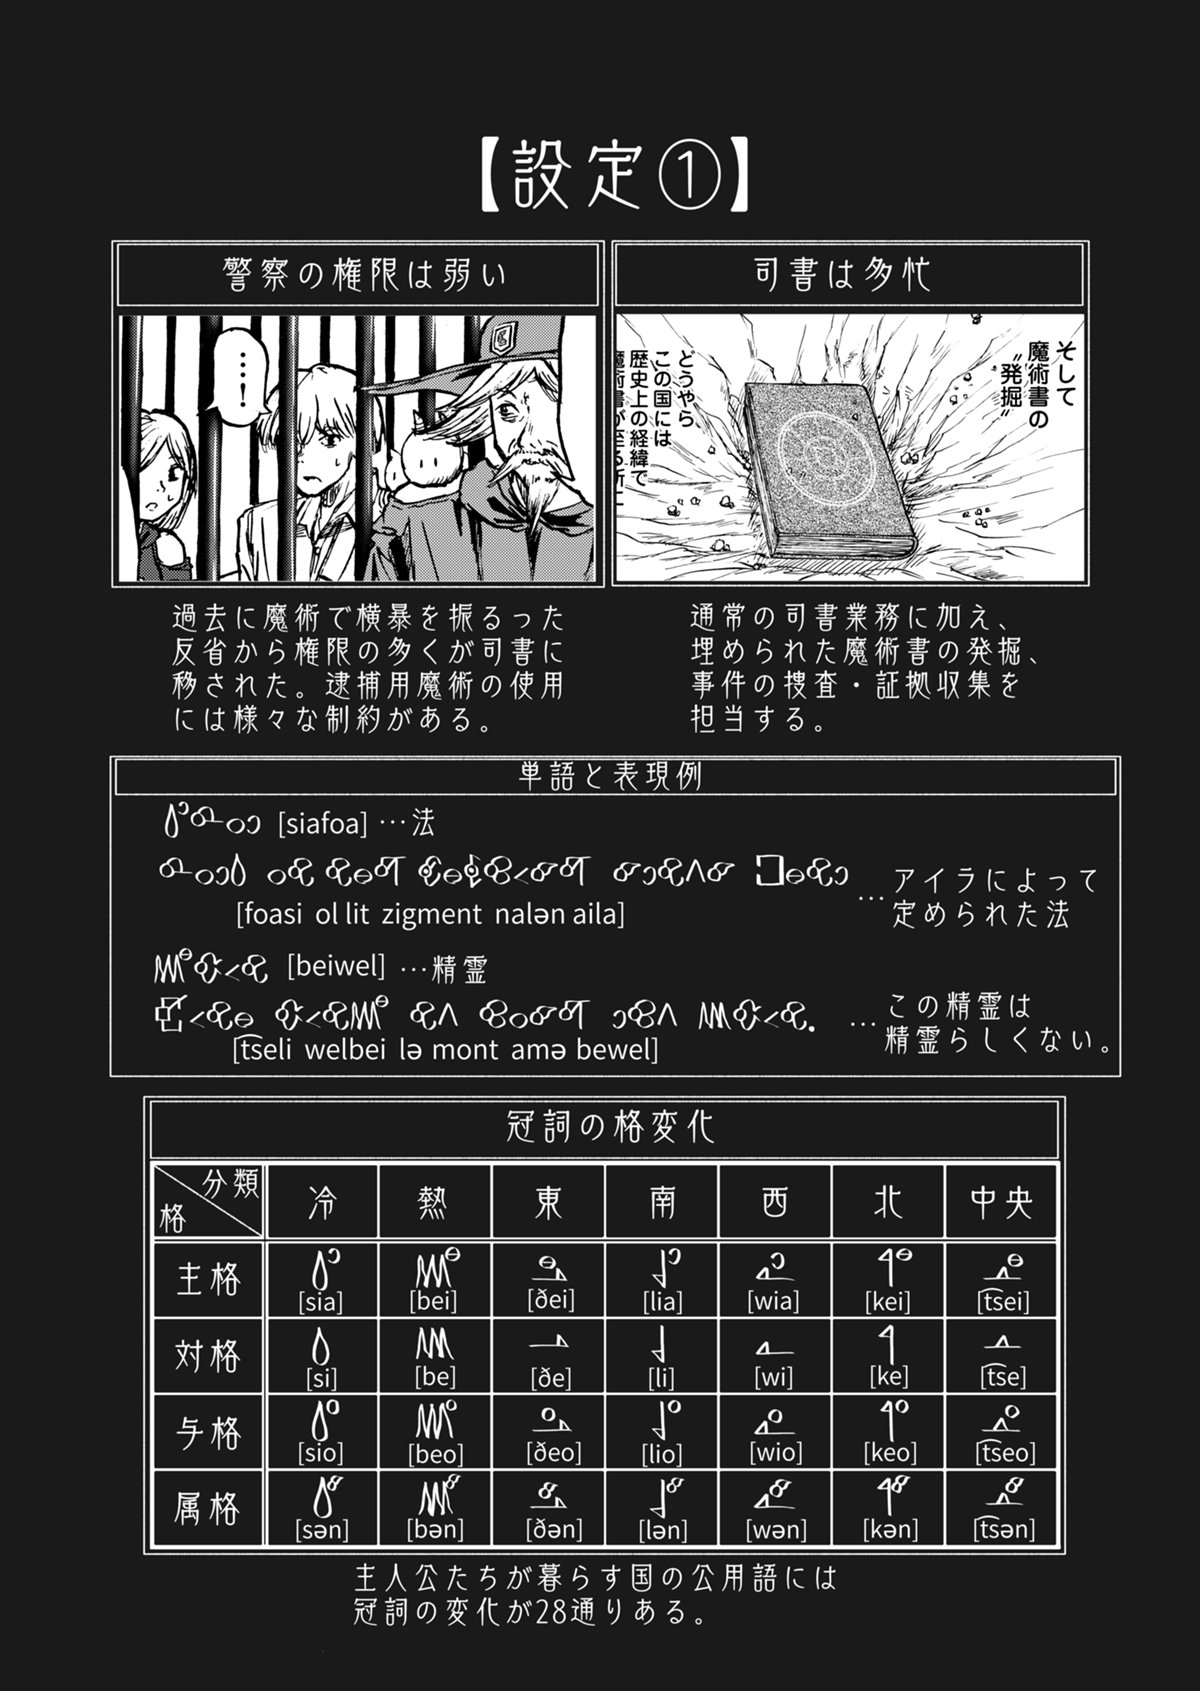 【設定①】
警察の権限は弱い
…!
過去に魔術で横暴を振るった
反省から権限の多くが司書に
移された。逮捕用魔術の使用
には様々な制約がある。
司書は多忙
そして
魔術書の
“発掘”
どうやら
この国には
歴史上の経緯で
魔術書が至る所に
通常の司書業務に加え、
埋められた魔術書の発掘、
事件の捜査・証拠収集を
担当する。
単語と表現例
[siafoa] …法
[foasi ol lit zigment nalən aila]
…アイラによって
定められた法
[beiwel] …精霊
[t͡seli welbei lə mont amə bewel]
…この精霊は
精霊らしくない。
冠詞の格変化
格 分類 冷 熱 東 南 西 北 中央
主格 [sia] [bei] [ðei] [lia] [wia] [kei] [t͡sei]
対格 [si] [be] [ðe] [li] [wi] [ke] [t͡se]
与格 [sio] [beo] [ðeo] [lio] [wio] [keo] [t͡seo]
属格 [sən] [bən] [ðən] [lən] [wən] [kən] [t͡sən]
主人公たちが暮らす国の公用語には
冠詞の変化が28通りある。